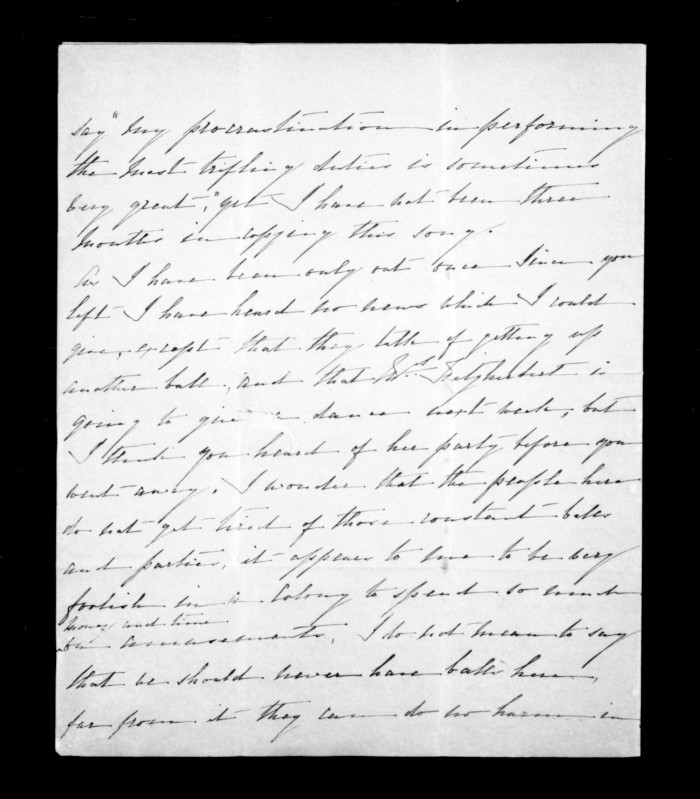 say "My procrastination in performing
the most trifling duties is sometimes
very great", yet I have not been three
months in copying this song.
As I have been only out once since you
left I have heard no news which I could
give, except that they talk of getting up
another ball, and that Mrs. Fitzherbert is
going to give a dance next week, but
I think you heard of her party before you
went away. I wonder that the people here
do not get tired of those constant balls
and parties, it appears to me to be very
foolish in a Colony to spend so much
money and time
on amusements. I do not mean to say
that we should never have balls here,
far from it they can do no harm in